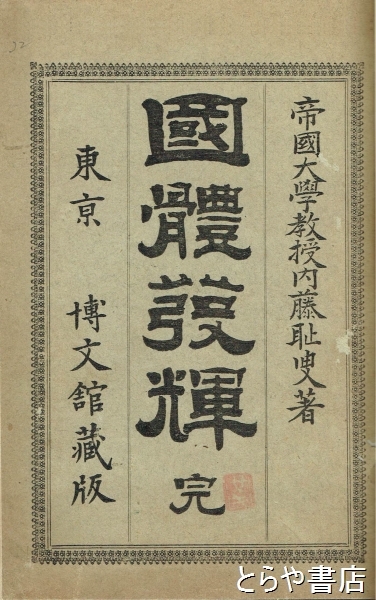 帝國大學教授內藤耻叟著
國體發輝 完
東京 博文館藏版
とらや書店